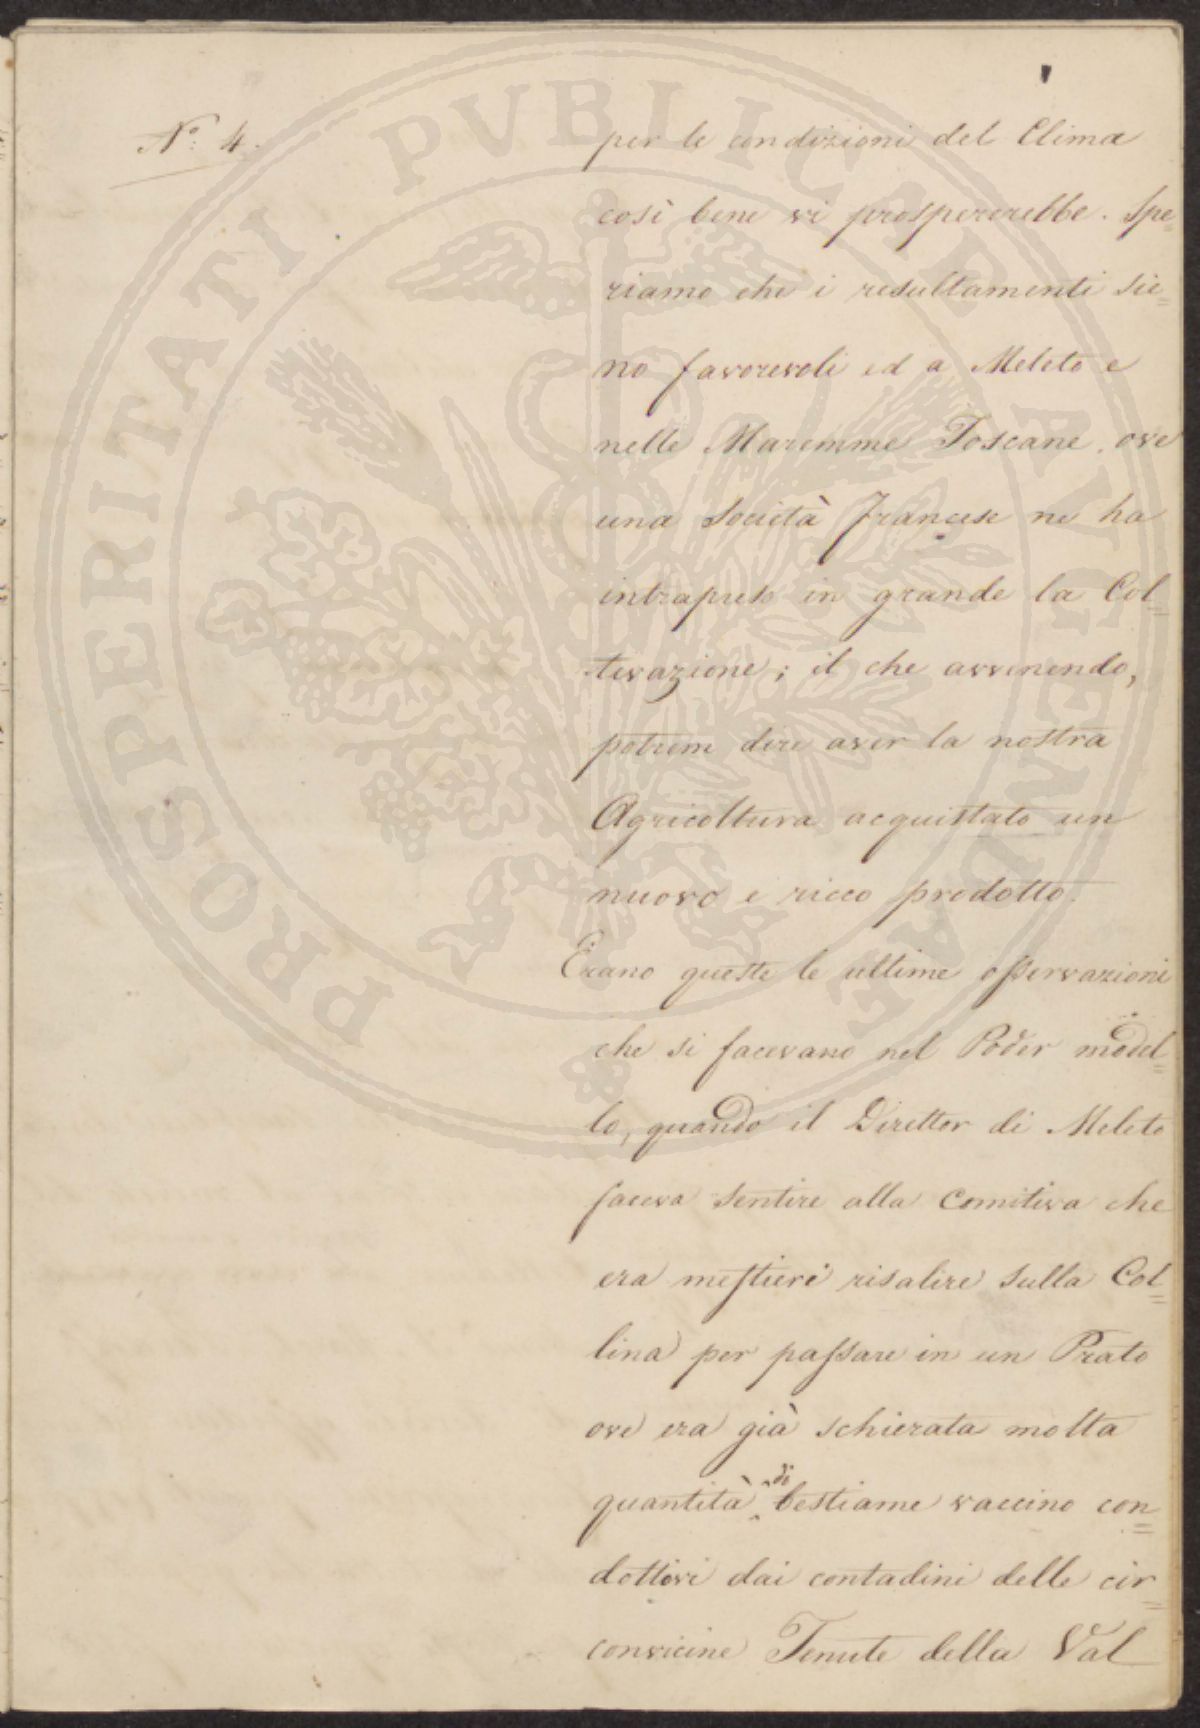 N.º 4.
per le condizioni del Clima
così bene vi prospererebbe. Spe=
riamo che i resultamenti sie=
no favorevoli ed a Meleto e
nelle Maremme Toscane, ove
una Società Francese ne ha
intrapreso in grande la Col=
tivazione; il che avvenendo,
potrem dire aver la nostra
Agricoltura acquistato un
nuovo e ricco prodotto.
Erano queste le ultime osservazioni
che si facevano nel Poder model=
lo, quando il Direttor di Meleto
faceva sentire alla Comitiva che
era mestieri risalire sulla Col=
lina per passare in un Prato
ove era già schierata molta
quantità di bestiame vaccino con=
dottovi dai contadini delle cir=
convicine Tenute della Val
PROSPERITATI PVBLICAE AVGENDAE